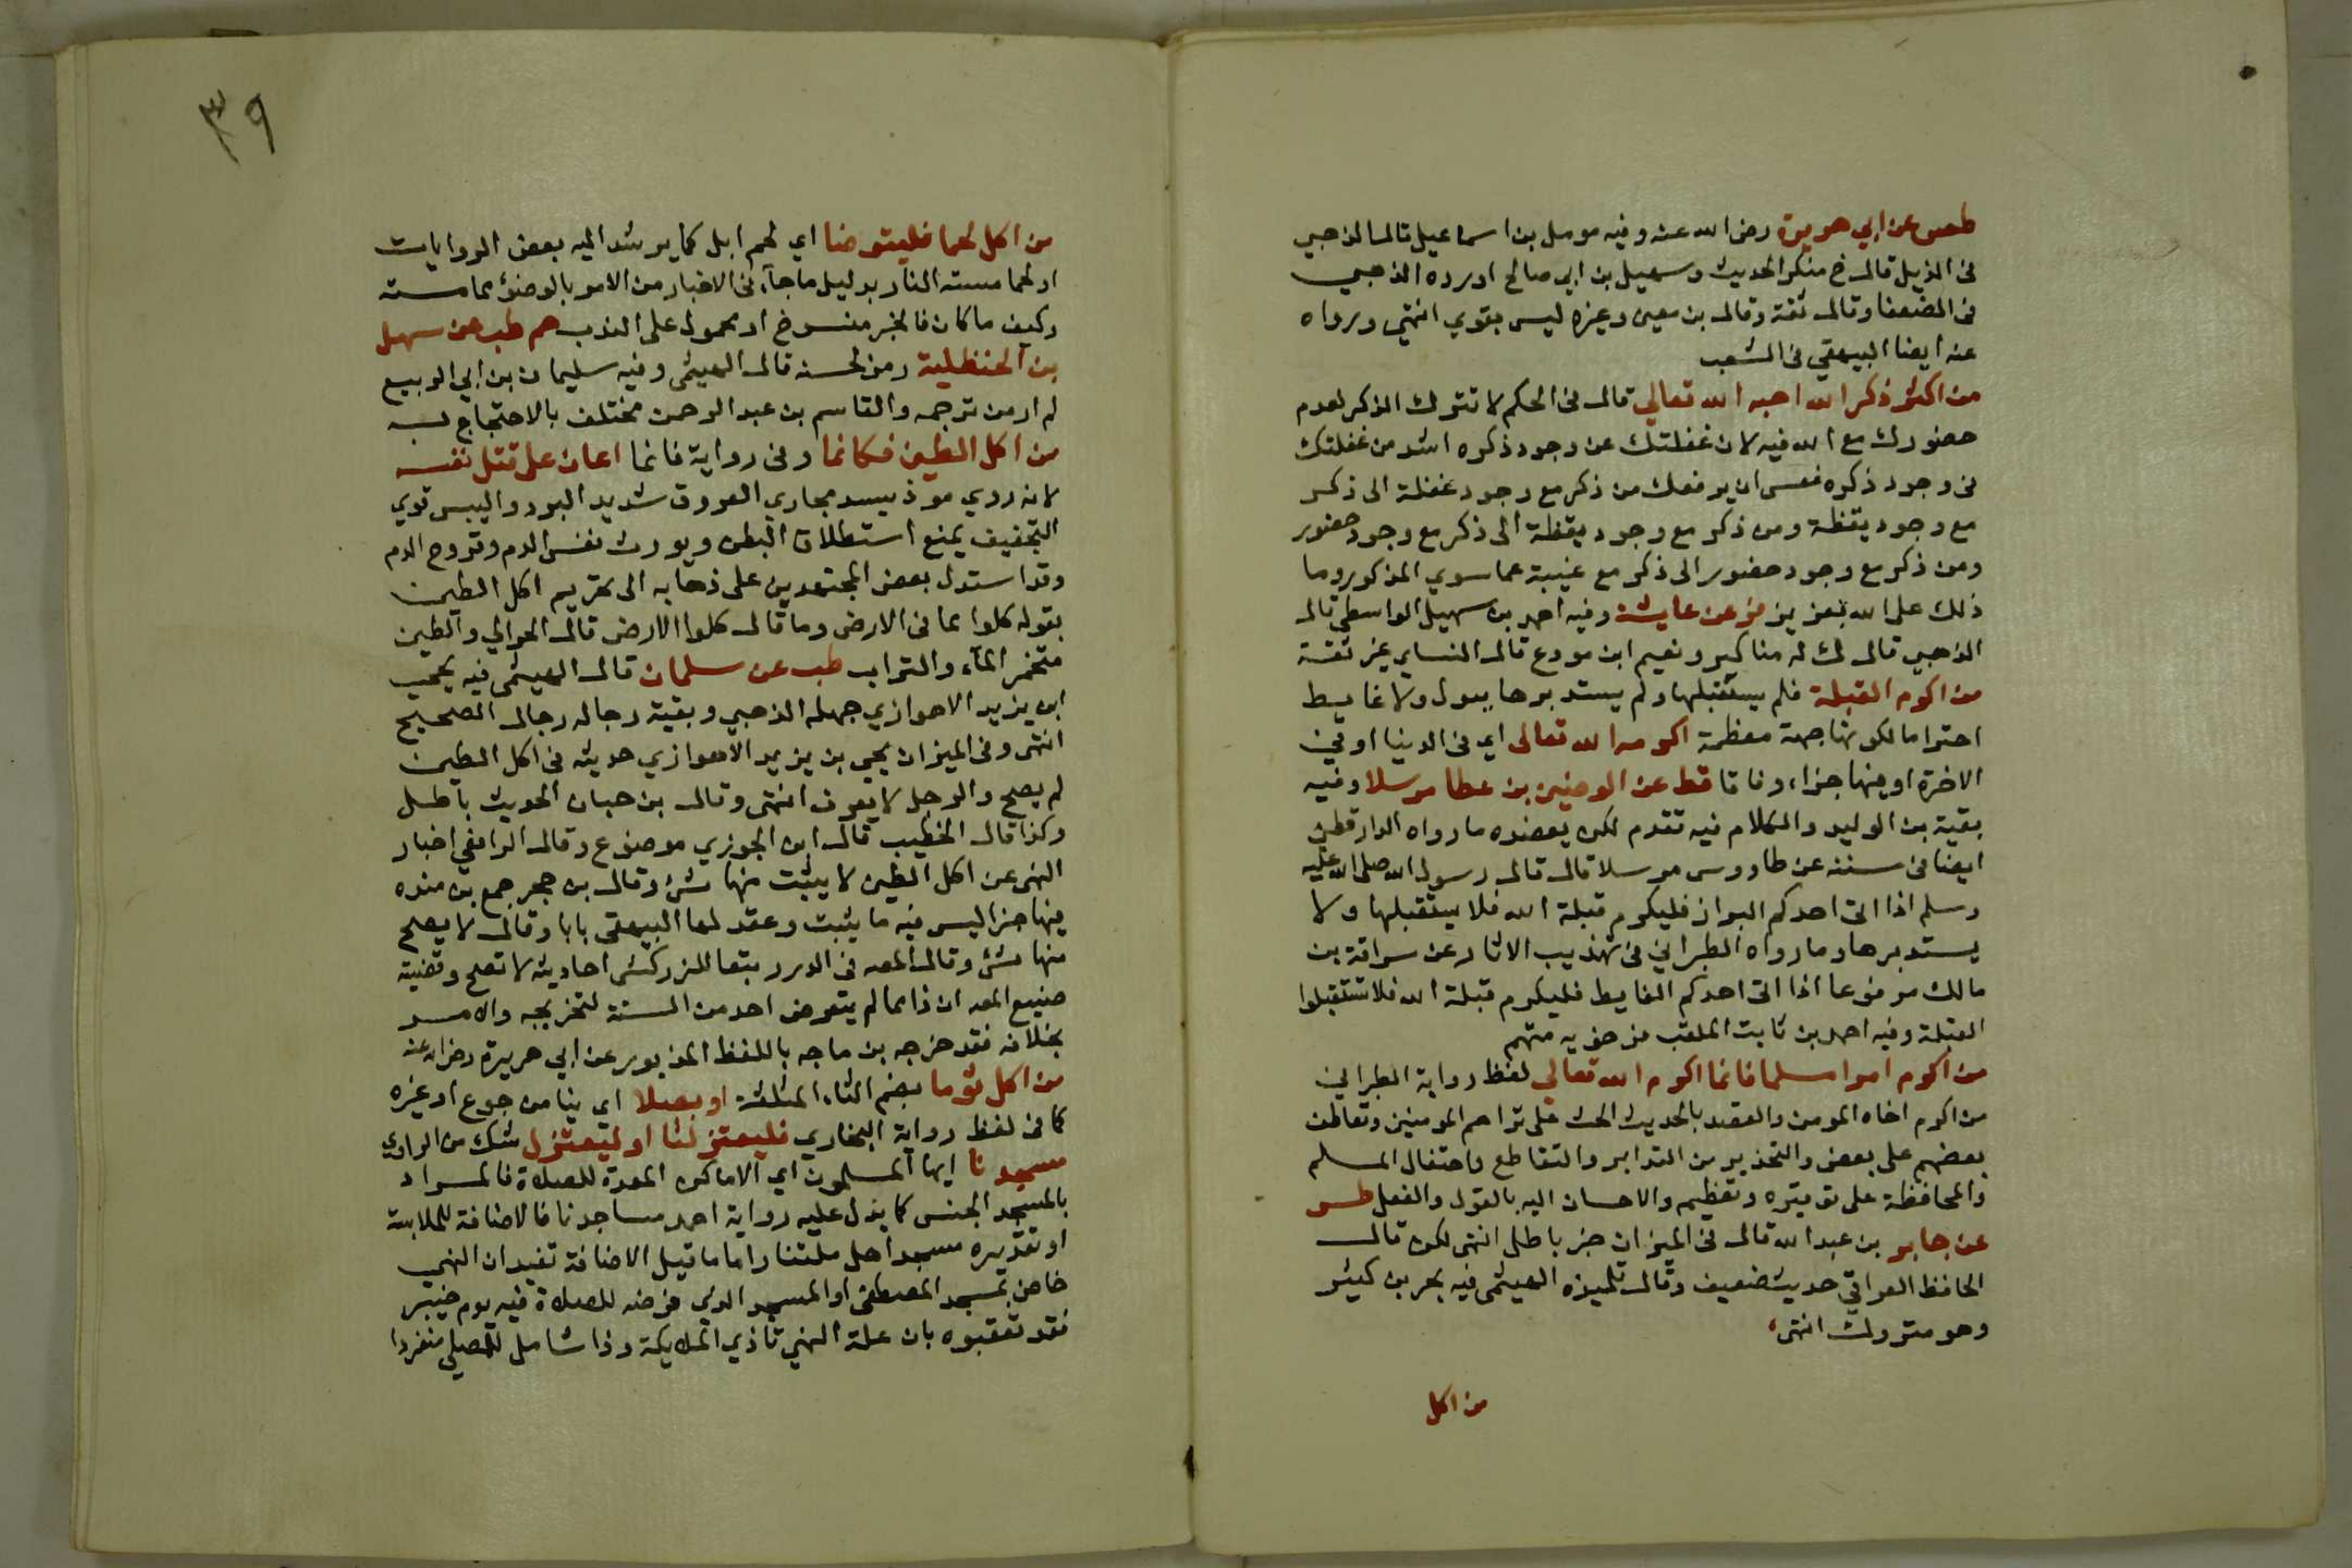 طص عن ابي هريرة رضى الله عنه وفيه مومل بن اسماعيل قال الذهبي
فى الذيل قال خ منكر الحديث وسهيل بن ابي صالح اورده الذهبي
فى الضعفا وقال ثقة وقال بن معين وغيره ليس بقوي انتهى ورواه
عنه ايضا البيهقي فى الشعب
من اكثر ذكر الله احبه الله تعالى قال فى الحكم لا تترك الذكر لعدم
حضورك مع الله فيه لان غفلتك عن وجود ذكره اشد من غفلتك
فى وجود ذكره فعسى ان يرفعك من ذكر مع وجود غفلة الى ذكر
مع وجود يقظة ومن ذكر مع وجود يقظة الى ذكر مع وجود حضور
ومن ذكر مع وجود حضور الى ذكر مع غيبة عما سوي المذكور وما
ذلك على الله بعزيز فر عن عايشة وفيه احمد بن سهيل الواسطى قال
الذهبي قال ك له مناكير ونعيم ابن مودع قال النساي غير ثقة
من اكرم القبلة فلم يستقبلها ولم يستدبرها ببول ولا غايط
احتراما لكونها جهة معظمة اكرمه الله تعالى اي فى الدنيا او فى
الاخرة او فيهما جزاء وفاقا قط عن الوضين بن عطا مرسلا وفيه
بقية بن الوليد والكلام فيه تقدم لكن يعضده ما رواه الدارقطنى
ايضا فى سننه عن طاووس مرسلا قال قال رسول الله صلى الله عليه
وسلم اذا اتى احدكم البراز فليكرم قبلة الله فلا يستقبلها ولا
يستدبرها وما رواه الطبراني فى تهذيب الاثار عن سراقة بن
مالك مرفوعا اذا اتى احدكم الغايط فليكرم قبلة الله فلا تستقبلوا
القبلة وفيه احمد بن ثابت الملقب فرخويه متهم
من اكرم امرا مسلما فانما اكرم الله تعالى لفظ رواية الطبراني
من اكرم اخاه المومن والقصد بالحديث الحث على تراحم المومنين وتعاطف
بعضهم على بعض والتحذير من التدابر والتقاطع واحتفال المسلم
والمحافظة على توقيره وتعظيم والاحسان اليه بالقول والفعل طس
عن جابر بن عبد الله قال فى الميزان خبر باطل انتهى لكن قال
الحافظ العراقي حديث ضعيف وقال تلميذه الهيثمى فيه بحر بن كثير
وهو متروك انتهى
من اكل
٣٩
من اكل لحما فليتوضا اي لحم ابل كما يرشد اليه بعض الروايات
او لحما مسته النار بدليل ما جآء فى الاخبار من الامر بالوضوء مما مسته
وكيف ما كان فالخبر منسوخ او محمول على الندب حم طب عن سهل
بن الحنظلية رمز لحسنه قال الهيثمى وفيه سليمان بن ابي الربيع
لم ار من ترجمه والقاسم بن عبد الرحمن مختلف بالاحتجاج به
من اكل الطين فكانما وفى رواية فانما اعان على قتل نفسه
لانه ردي موذ يسد مجاري العروق شديد البرد واليبس قوي
التجفيف يمنع استطلاق البطن ويورث نفث الدم وقروح الدم
وقد استدل بعض المجتهدين على ذهابه الى تحريم اكل الطين
بقوله كلوا مما فى الارض وما قال كلوا الارض قال الحرالي والطين
متخمر المآء والتراب طب عن سلمان قال الهيثمى فيه يحيى
ابن يزيد الاهوازي جهله الذهبي وبقية رجاله رجال الصحيح
انتهى وفى الميزان يحيى بن يزيد الاهوازي حديثه فى اكل الطين
لم يصح والرجل لا يعرف انتهى وقال بن حبان الحديث باطل
وكذا قال الخطيب قال ابن الجوزي موضوع وقال الرافعي اخبار
النهى عن اكل الطين لا يثبت منها شئ وقال بن حجر جمع بن منده
فيها جزا ليس فيه ما يثبت وعقد لها البيهقى بابا وقال لا يصح
منها شئ وقال المص فى الدرر تبعا للزركشى احاديثه لا تصح وقضية
صنيع المص ان ذا مما لم يتعرض احد من الستة لتخريجه والامر
بخلافه فقد خرجه بن ماجه باللفظ المزبور عن ابي هريرة رضى الله عنه
من اكل ثوما بضم الثاء المثلثة او بصلا اي نيا من جوع او غيره
كما فى لفظ رواية البخاري فليعتزلنا او ليعتزل شك من الراوى
مسجدنا ايها المسلمون اي الاماكن المعدة للصلاة فالمراد
بالمسجد الجنس كما يدل عليه رواية احمد مساجدنا فالاضافة للملابسة
او تقديره مسجد اهل ملتنا واما ما قيل الاضافة تفيد ان النهى
خاص بمسجد المصطفى او المسجد الذي فرضه للصلاة فيه يوم خيبر
فقد تعقبوه بان علة النهى تاذي الملايكة وذا شامل للمصلى منفردا